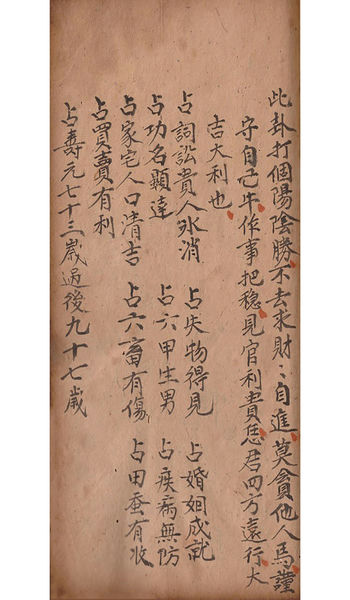 此卦打個陽陰勝不去求財〻自進莫貪他人馬謹
守自己牛作事把稳見官利貴恁君四方遠行大
吉大利也
占詞訟貴人氷消 占失物得見 占婚姻成就
占功名顯達 占六甲生男 占疾病無防
占家宅人口清吉 占六畜有傷 占田蚕有收
占買賣有利
占壽元七十三歲過後九十七歲